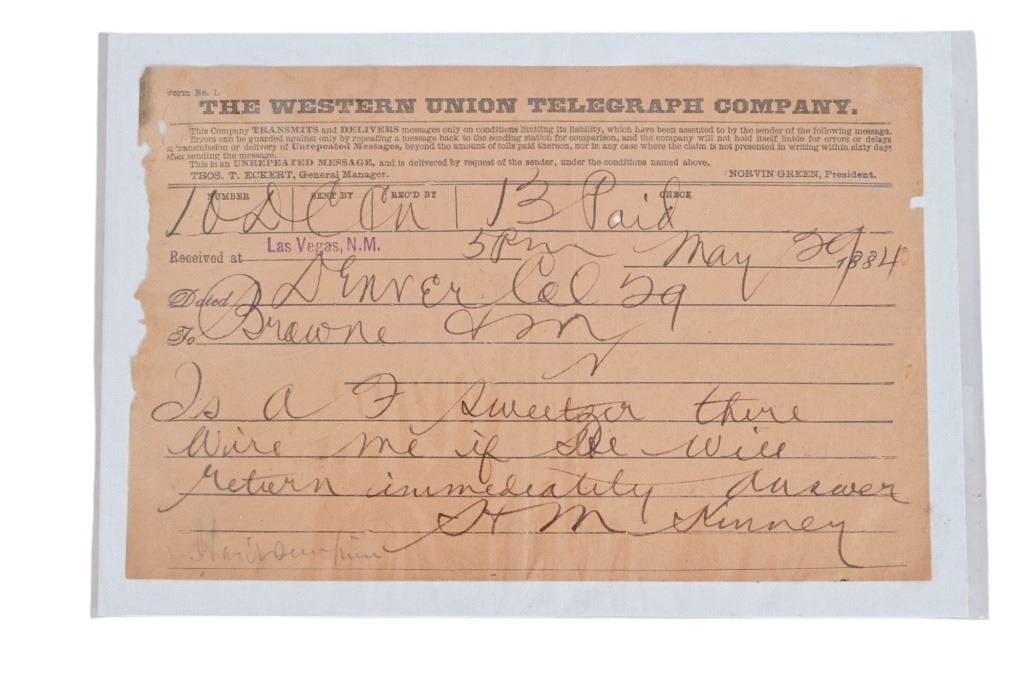 Form No. 1.
THE WESTERN UNION TELEGRAPH COMPANY.
This Company TRANSMITS and DELIVERS messages only on conditions limiting its liability, which have been assented to by the sender of the following message.
Errors can be guarded against only by repeating a message back to the sending station for comparison, and the company will not hold itself liable for errors or delays
in transmission or delivery of Unrepeated Messages, beyond the amount of tolls paid thereon, nor in any case where the claim is not presented in writing within sixty days
after sending the message.
This is an UNREPEATED MESSAGE, and is delivered by request of the sender, under the conditions named above.
THOS. T. ECKERT, General Manager. NORVIN GREEN, President.
NUMBER SENT BY REC'D BY CHECK
10 DC Cn 13 Paid
Received at Las Vegas, N.M. 5 Pm May 29 1884
Dated Denver Col 29
To Browne & M
Is A F Sweetzer there
Wire me if he will
return immediately Answer
H M Kinney